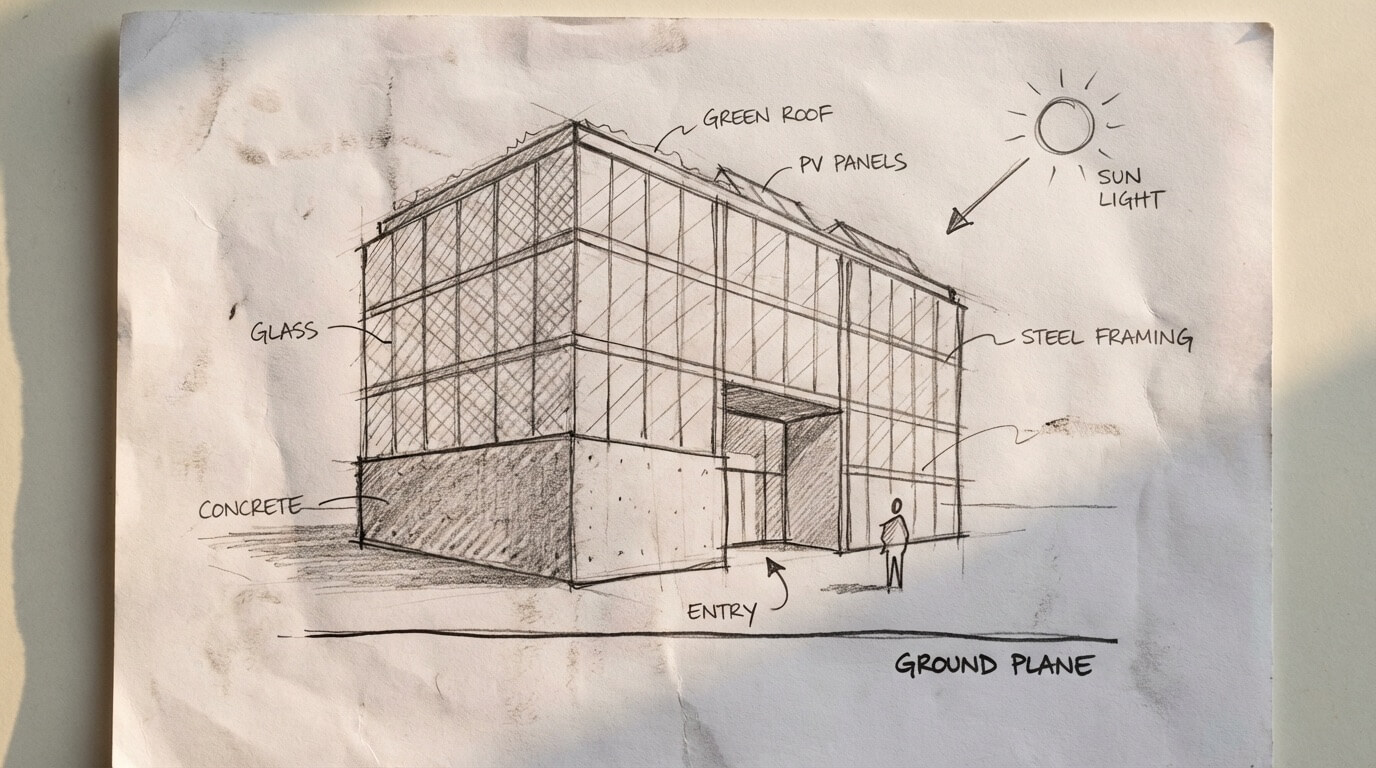 GREEN ROOF
PV PANELS
SUN
LIGHT
GLASS
STEEL FRAMING
CONCRETE
ENTRY
GROUND PLANE